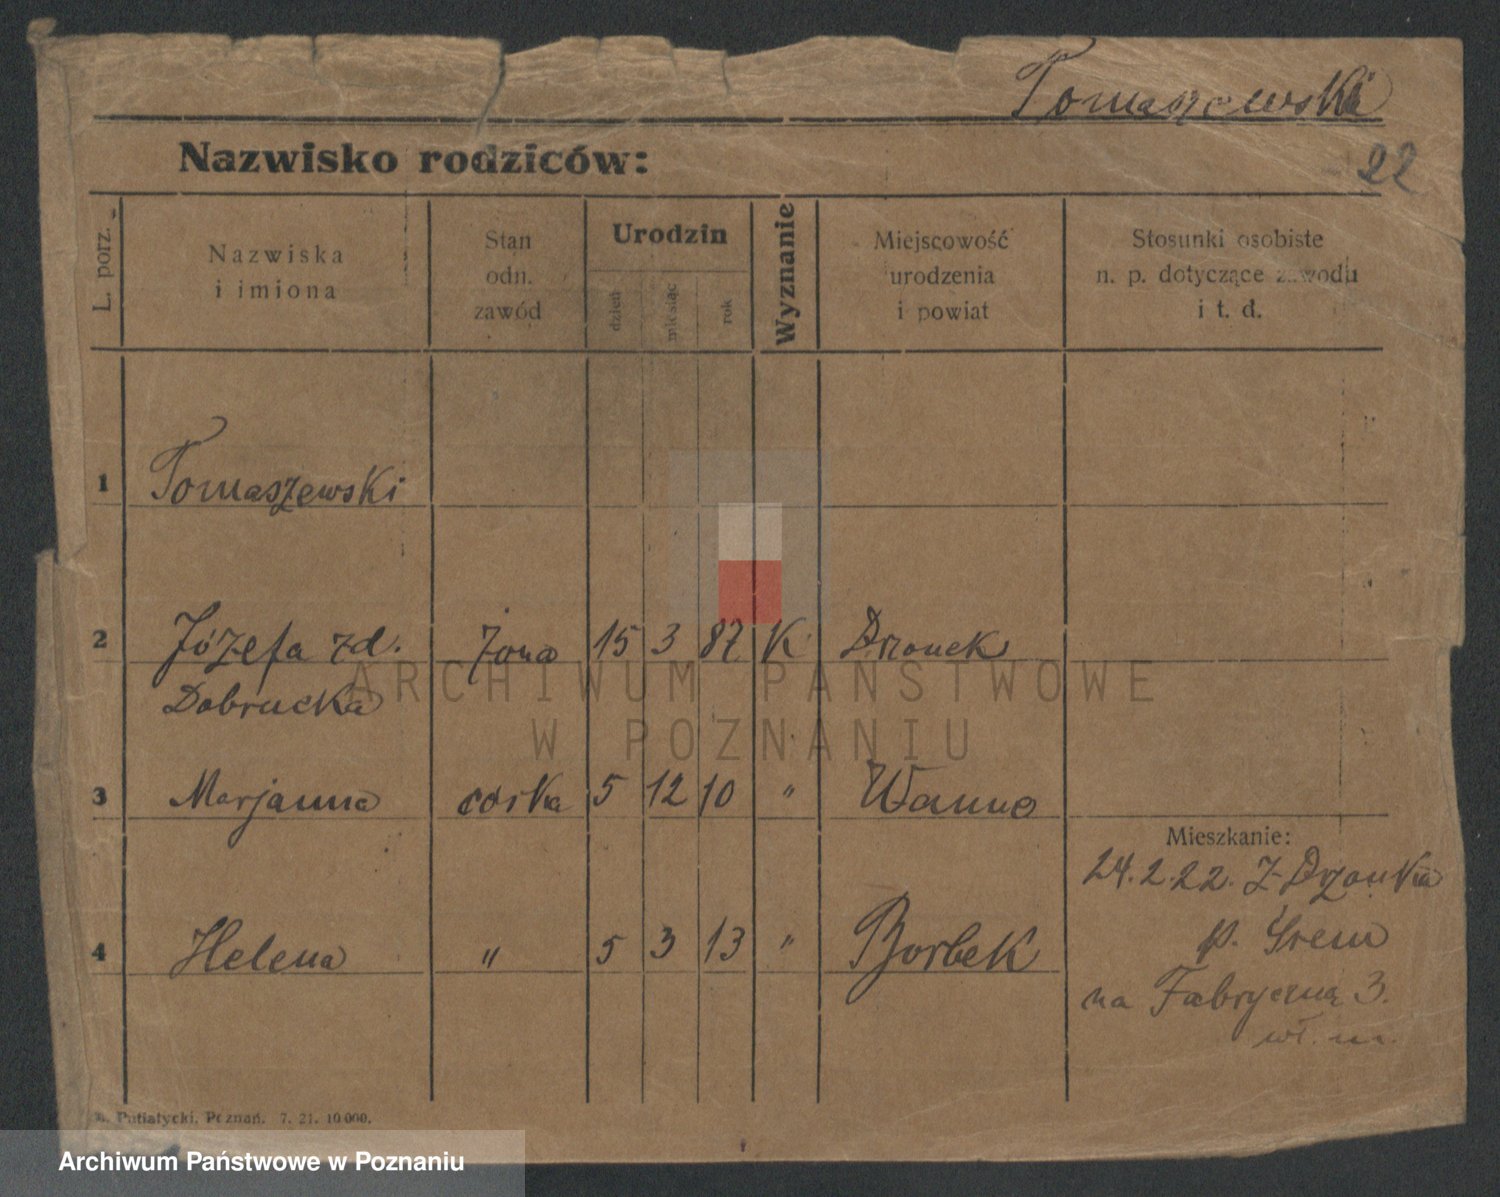 Tomaszewski
22
Nazwisko rodziców:
L. porz.
Nazwiska
i imiona
Stan
odn.
zawód
Urodzin
dzień
miesiąc
rok
Wyznanie
Miejscowość
urodzenia
i powiat
Stosunki osobiste
n. p. dotyczące zawodu
i t. d.
1 Tomaszewski
2 Józefa zd. żona 15 3 87 K Drzonek
Dobrucka
3 Marjanna córka 5 12 10 " Wanne
Mieszkanie:
24.2.22. z Drzonka
4 Helena " 5 3 13 " Borbek
p. Śrem
na Fabryczną 3.
wł. m.
Putiatycki, Poznań. 7. 21. 10.000.
ARCHIWUM PAŃSTWOWE
W POZNANIU
Archiwum Państwowe w Poznaniu